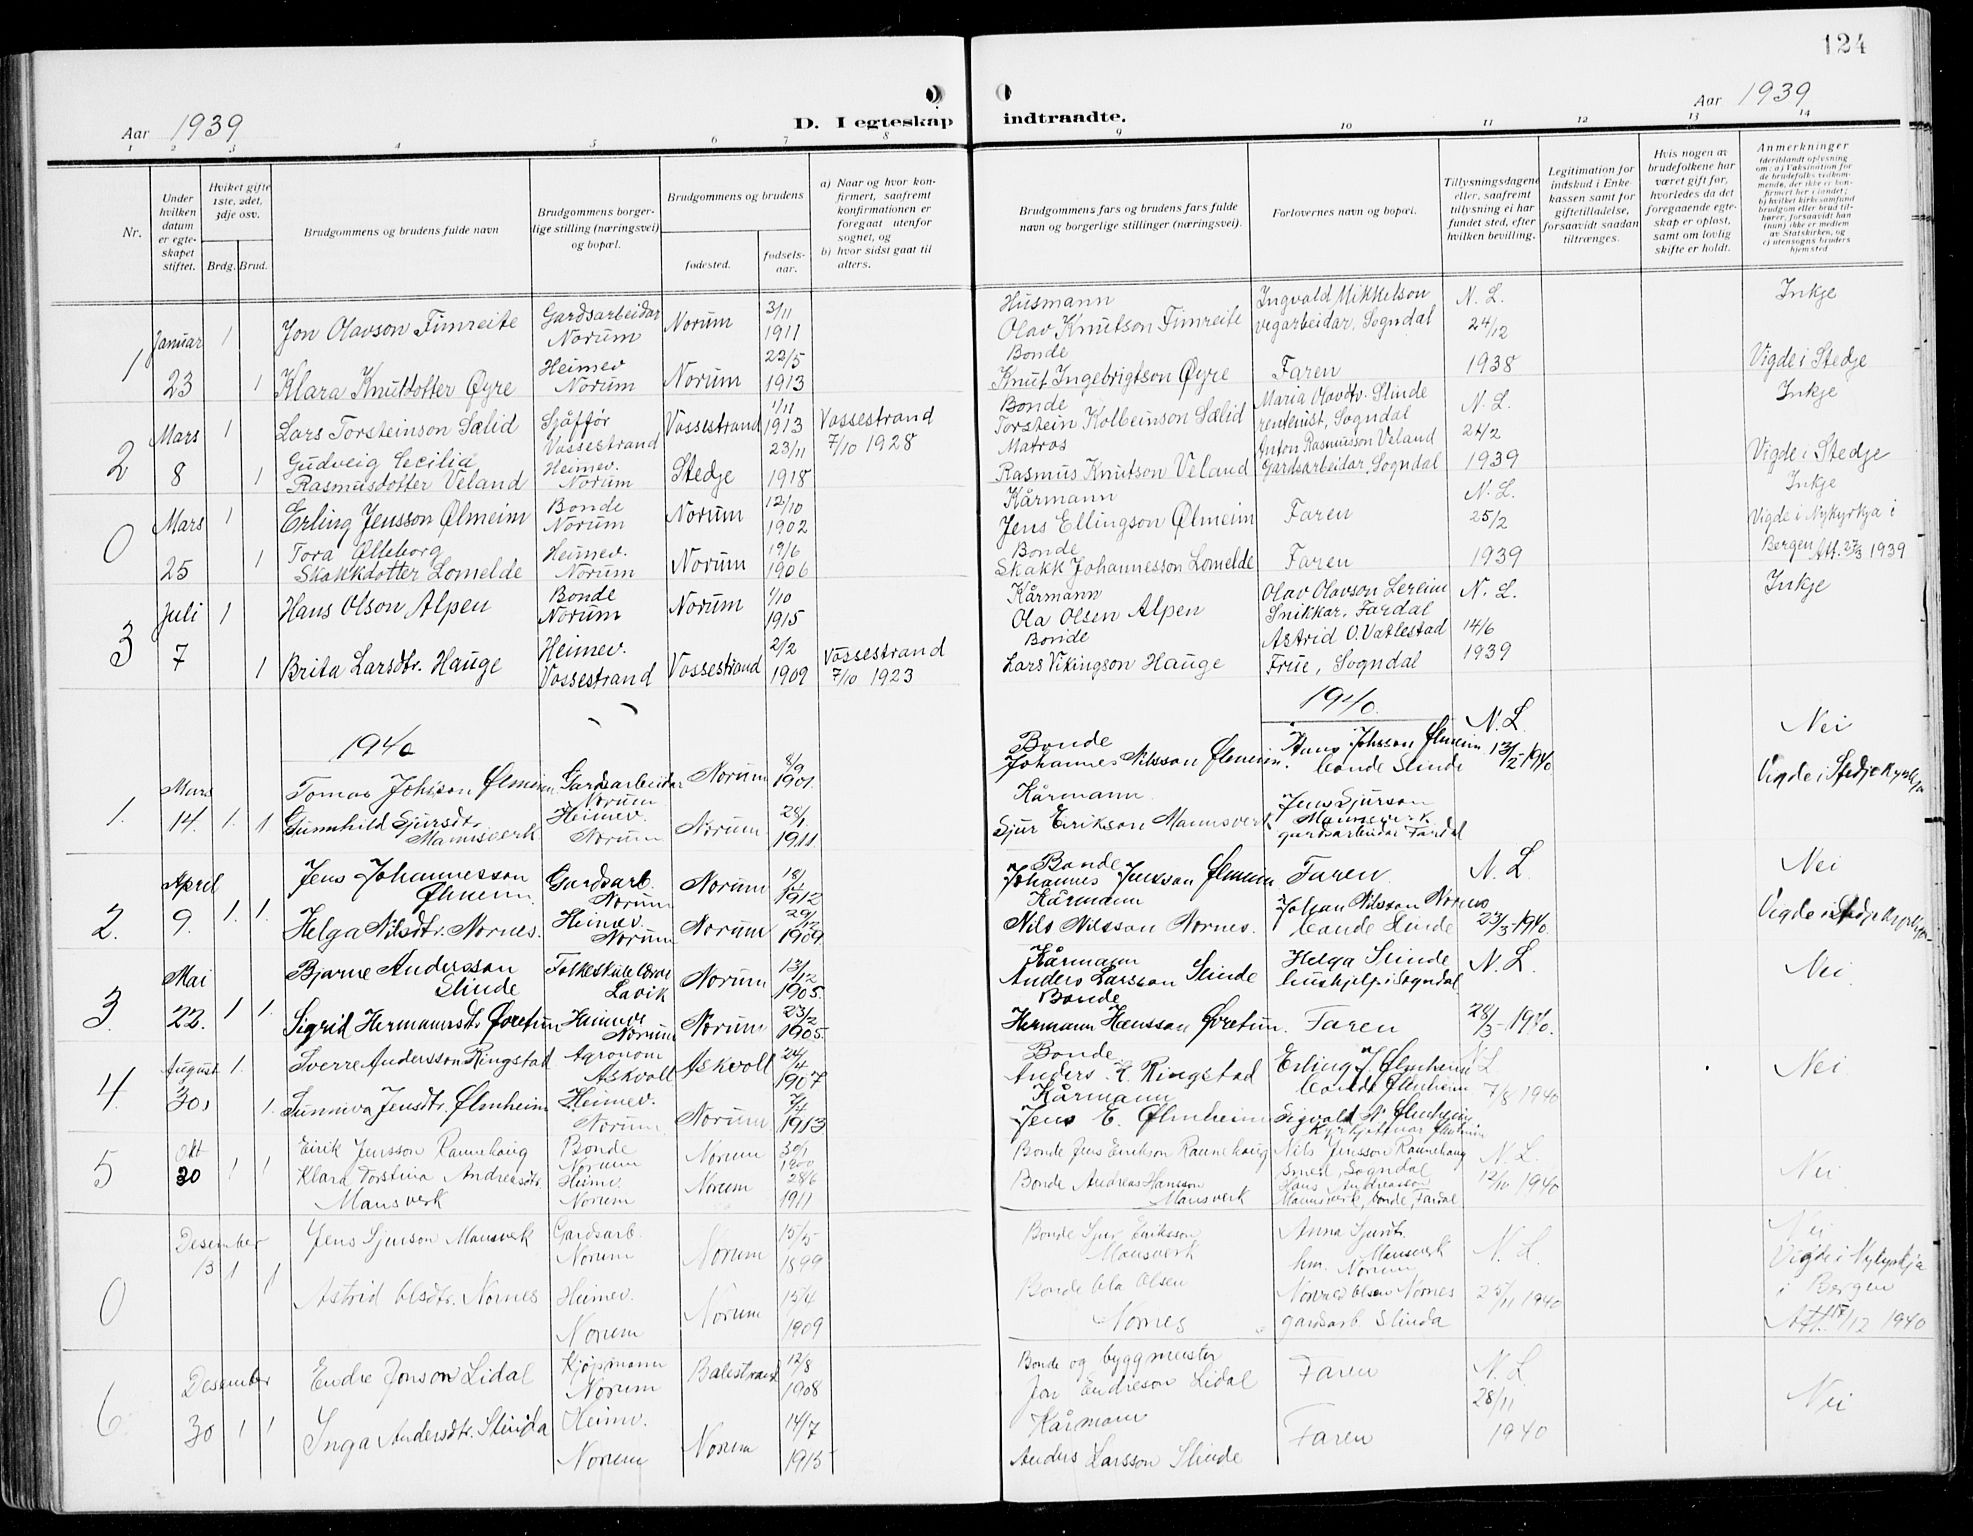 124
Aar 1939
D. I egteskap indtraadte.
Aar 1939
1 2 3 4 5 6 7 8 9 10 11 12 13 14
Nr.
Under hvilken datum er egteskapet stiftet.
Hvilket gifte 1ste, 2det, 3dje osv.
Brdg. Brud.
Brudgommens og brudens fulde navn
Brudgommens borgerlige stilling (næringsvei) og bopæl.
Brudgommens og brudens
fødested.
fødselsaar.
a) Naar og hvor konfirmert, saafremt konfirmationen er foregaaet utenfor sognet, og
b) hvor sidst gaat til alters.
Brudgommens fars og brudens fars fulde navn og borgerlige stillinger (næringsvei).
Forlovernes navn og bopæl.
Tillysningsdagene eller, saafremt tillysning ei har fundet sted, efter hvilken bevilling.
Legitimation for indskud i Enkekassen samt for giftetilladelse, forsaavidt saadan tiltrænges.
Hvis nogen av brudefolkene har været gift før, hvorledes da det foregaaende egteskap er opløst, samt om lovlig skifte er holdt.
Anmerkninger
1 Januar 23 1 Jon Olavson Fimreite Gardsarbeidar Norum Norum 3/11 1911
1 Klara Knutdotter Øyre Heimev Norum Norum 22/5 1913
Husmann Olav Knutson Fimreite Ingvald Mikkelson vegarbeidar, Sogndal N. L. 24/12 1938 Inkje
Bonde Knut Ingebrigtson Øyre Faren Vigde i Stedje
2 Mars 8 1 Lars Torsteinson Sælid Sjåffør Vossestrand Vossestrand 1/11 1913 Vossestrand 7/10 1928
1 Gudveig Cecilia Rasmusdotter Veland Heimev. Norum Stedje 23/11 1918
Bonde Torstein Kolbeinson Sælid Maria Olavdtr. Slinde rentenist, Sogndal N. L. 24/2 1939 Inkje
Matros Rasmus Knutson Veland Anton Rasmusson Veland Gardsarbeidar, Sogndal Vigde i Stedje
0 Mars 25 1 Erling Jensson Ølmeim Bonde Norum Norum 12/10 1902
1 Tora Ølleborg Skakkdotter Lomelde Heimev. Norum Norum 19/6 1906
Kårmann Jens Ellingson Ølmeim Faren N. L. 25/2 1939 Inkje
Bonde Skakk Johannesson Lomelde Faren Vigde i Nykyrkja i Bergen Att. 27/3 1939
3 Juli 7 1 Hans Olson Alpen Bonde Norum Norum 1/10 1915
1 Brita Larsdtr. Hauge Heimev. Vossestrand Vossestrand 2/2 1909 Vossestrand 7/10 1923
Kårmann Ola Olsen Alpen Olav Olavson Lereim Snikkar, Fardal N. L. 14/6 1939 Inkje
Bonde Lars Vikingson Hauge Astrid O. Vatlestad Frue, Sogndal
1940
1940.
1. Mars 14. 1. 1 Tomas Johsson Ølmeim Gardsarbeidar Norum Norum 8/9 1901.
Gunnhild Sjursdtr. Mannsverk Heimev. Norum Norum 28/1 1911
Bonde Johannes Nilsson Ølmeim. Hans Johsson Ølmeim bonde Slinde N. L. 13/2-1940 Nei
Kårmann Sjur Erikson Mannsverk Jens Sjurson Mannsverk gardsarbeidar Fardal Vigde i Stedje Kyrkja
2. April 9. 1. 1. Jens Johannesson Ølmeim. Gardsarb. Norum Norum 18/ 1912
Helga Nilsdtr. Nornes. Heimev. Norum Norum 29/12 1909.
Bonde Johannes Jensson Ølmeim Faren. N. L. 23/3-1940. Nei
Kårmann Nils Nilsson Nornes. Johan Nilsson Nornes bonde Slinde Vigde i Stedje Kyrkja
3. Mai 22. 1 1. Bjarne Andersson Slinde Folkeskulelærar Lavik Norum 13/12 1905.
Sigrid Hermannsdtr. Øvretun Heimev Norum Norum 23/2 1905.
Kårmann Anders Larsson Slinde Helga Slinde hushjelp i Sogndal N. L. 28/3-1940. Nei.
Bonde Hermann Hansson Øvretun. Faren
4. August 30. 1. 1. Sverre Andersson Ringstad Agronom Askvoll Askvoll 24/4 1907
Sunniva Jensdtr. Ølmheim Heimev. Norum Norum 7/4 1913
Bonde Anders K. Ringstad Erling J. Ølmheim bonde Ølmheim N L 7/8 1940 Nei
Kårmann Jens E. Ølmheim Sigvald N. Ølmheim
5 Okt 30 1 1 Eirik Jensson Raunehaug Bonde Norum Norum 30/1 1900
Klara Torstina Andreasdtr. Mansverk Heimv. Norum Norum 28/6 1911
Bonde Jens Eirikson Raunehaug Nils Jensson Raunehaug Smed, Sogndal N. L. 12/10 1940 Nei
Bonde Andreas Hansson Mansverk Hans Andreasson Mannsverk, bonde, Fardal
0 Desember 13 1 1 Jens Sjurson Mansverk Gardsarb. Norum Norum 15/5 1899
Astrid Olsdtr. Nornes Heimev. Norum Norum 15/4 1909
Bonde Sjur Eriksson Mansverk Anna Sjursdtr. Mansverk hm. Norum N. L. 25/11 1940 Nei
Bonde Ola Olsen Nornes Olsen Nornes gardsarb. Slinda Vigde i Nykyrkja i Bergen Att. 17/12 1940
6 Desember 30 1 1 Endre Jonson Lidal Kjøpmann Norum Balestrand 12/8 1908
Inga Andersdtr. Slinda Heimv. Norum Norum 14/7 1915
Bonde og byggmeister Jon Endreson Lidal Faren N. L. 28/11 1940 Nei
Kårmann Anders Larsson Slinde Faren